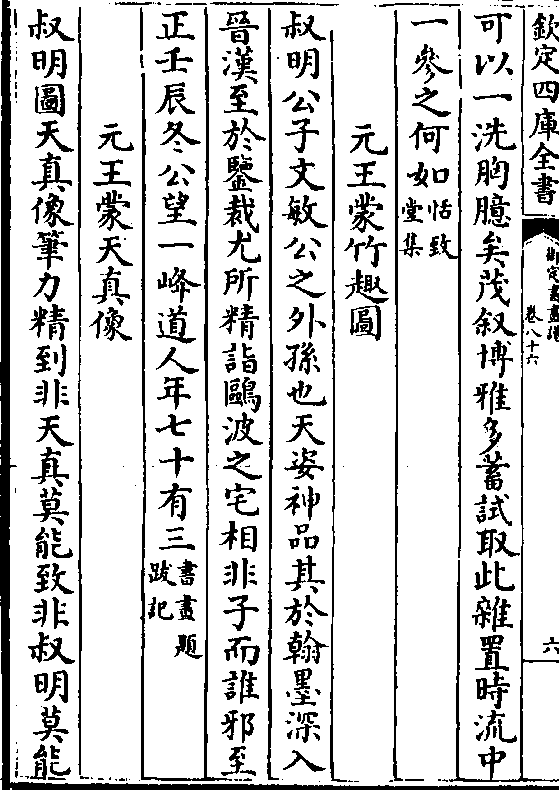 欽定四庫全書
卷八十六
六
可以一洗胸臆矣茂叙博雅多蓄試取此雜置時流中
一參之何如恬致堂集
元王蒙竹趣圖
叔明公子文敏公之外孫也天姿神品其於翰墨深入
晉漢至於鑒裁尤所精詣鷗波之宅相非子而誰邪至
正壬辰冬公望一峰道人年七十有三書畫題跋記
元王蒙天真像
叔明圖天真像筆力精到非天真莫能致非叔明莫能